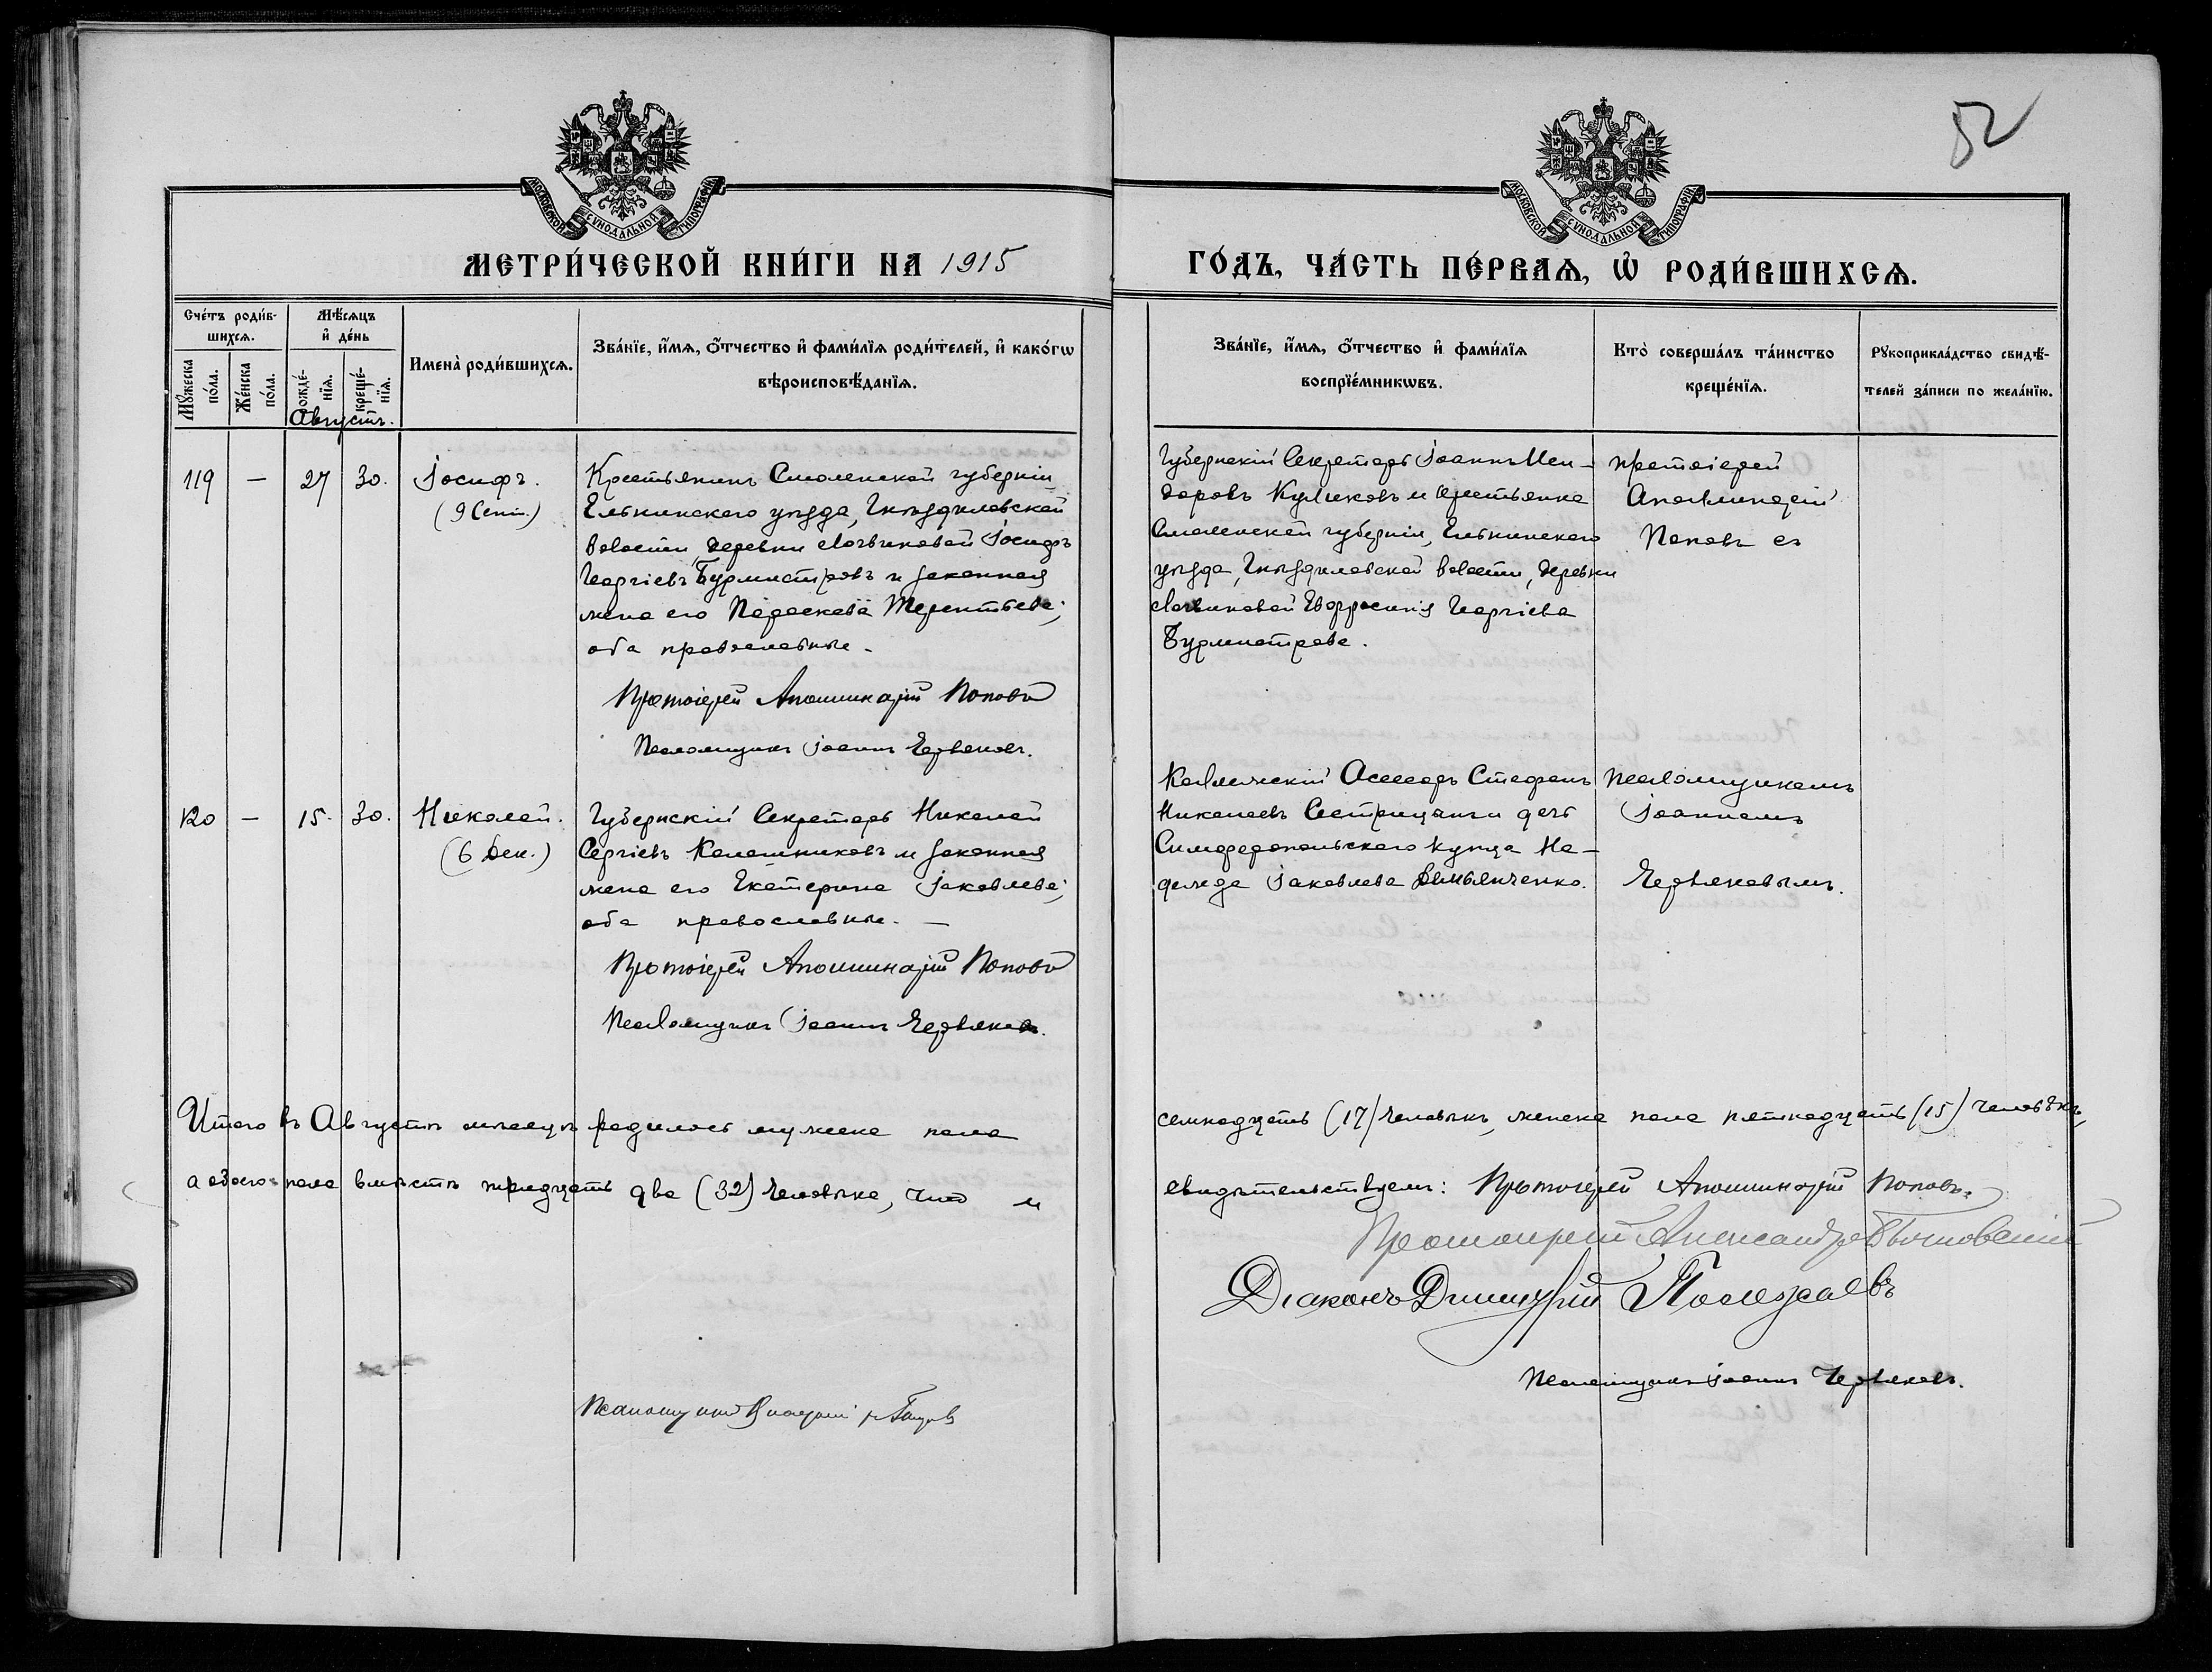 52
МОСКОВСКОЙ СУНОДАЛЬНОЙ ТИПОГРАФІИ
МОСКОВСКОЙ СУНОДАЛЬНОЙ ТИПОГРАФІИ
МЕТРИ́ЧЕСКОЙ КНИ́ГИ НА 1915
ГО́ДЪ, ЧА́СТЬ ПЕ́РВАѦ, Ѡ҆ РОДИ́ВШИХСѦ.
Сче́тъ роди́в-
шихсѧ.
Мꙋ́жеска по́ла.
Же́нска по́ла.
Мѣ́сѧцъ
и҆ де́нь
рожде́-
нїѧ.
креще́-
нїѧ.
Августъ.
Имена̀ роди́вшихсѧ.
Зва́нїе, и҆́мѧ, ѻ҆́тчество и҆ фами́лїѧ роди́телей, и҆ како́гѡ
вѣроисповѣ́данїѧ.
Зва́нїе, и҆́мѧ, ѻ҆́тчество и҆ фами́лїѧ
воспрїе́мникѡвъ.
Кто̀ соверша́лъ та́инство
креще́нїѧ.
Рꙋкоприкла́дство свидѣ́-
телей за́писи по жела́нїю.
119 — 27 30. Іосифъ.
(9 Сент.)
Крестьянинъ Смоленской губерніи
Ельнинскаго уѣзда, Гнѣздиловской
волости, деревни Іосифъ
Георгіевъ Бурмистровъ и законная
жена его Параскева Терентьева;
оба православные.
Протоіерей Аполлинарій Поповъ
Псаломщикъ Іоаннъ Червяковъ.
Губернскій Секретарь Іоаннъ Иси-
доровъ Куликовъ и крестьянка
Смоленской губерніи, Ельнинскаго
уѣзда, Гнѣздиловской волости, деревни
Евфросинія Георгіева
Бурмистрова.
протоіерей
Аполлинарій
Поповъ съ
120 — 15. 30. Николай.
(6 Дек.)
Губернскій Секретарь Николай
Сергіевъ Калашниковъ и законная
жена его Екатерина Іаковлева;
оба православные. —
Протоіерей Аполлинарій Поповъ
Псаломщикъ Іоаннъ Червяковъ.
Коллежскій Асессоръ Стефанъ
Николаевъ и дочь
Симферопольскаго купца На-
дежда Іаковлева Демьянченко.
псаломщикомъ
Іоанномъ
Червяковымъ.
Итого въ Августѣ мѣсяцѣ родилось мужска пола
семнадцать (17) человѣкъ, женска пола пятнадцать (15) человѣкъ,
а обоего пола вмѣстѣ тридцать два (32) человѣка, что и
свидѣтельствуемъ: Протоіерей Аполлинарій Поповъ.
Протоіерей Александръ
Діаконъ Димитрій Полежаевъ
Псаломщикъ Іоаннъ Червяковъ.
Псаломщикъ